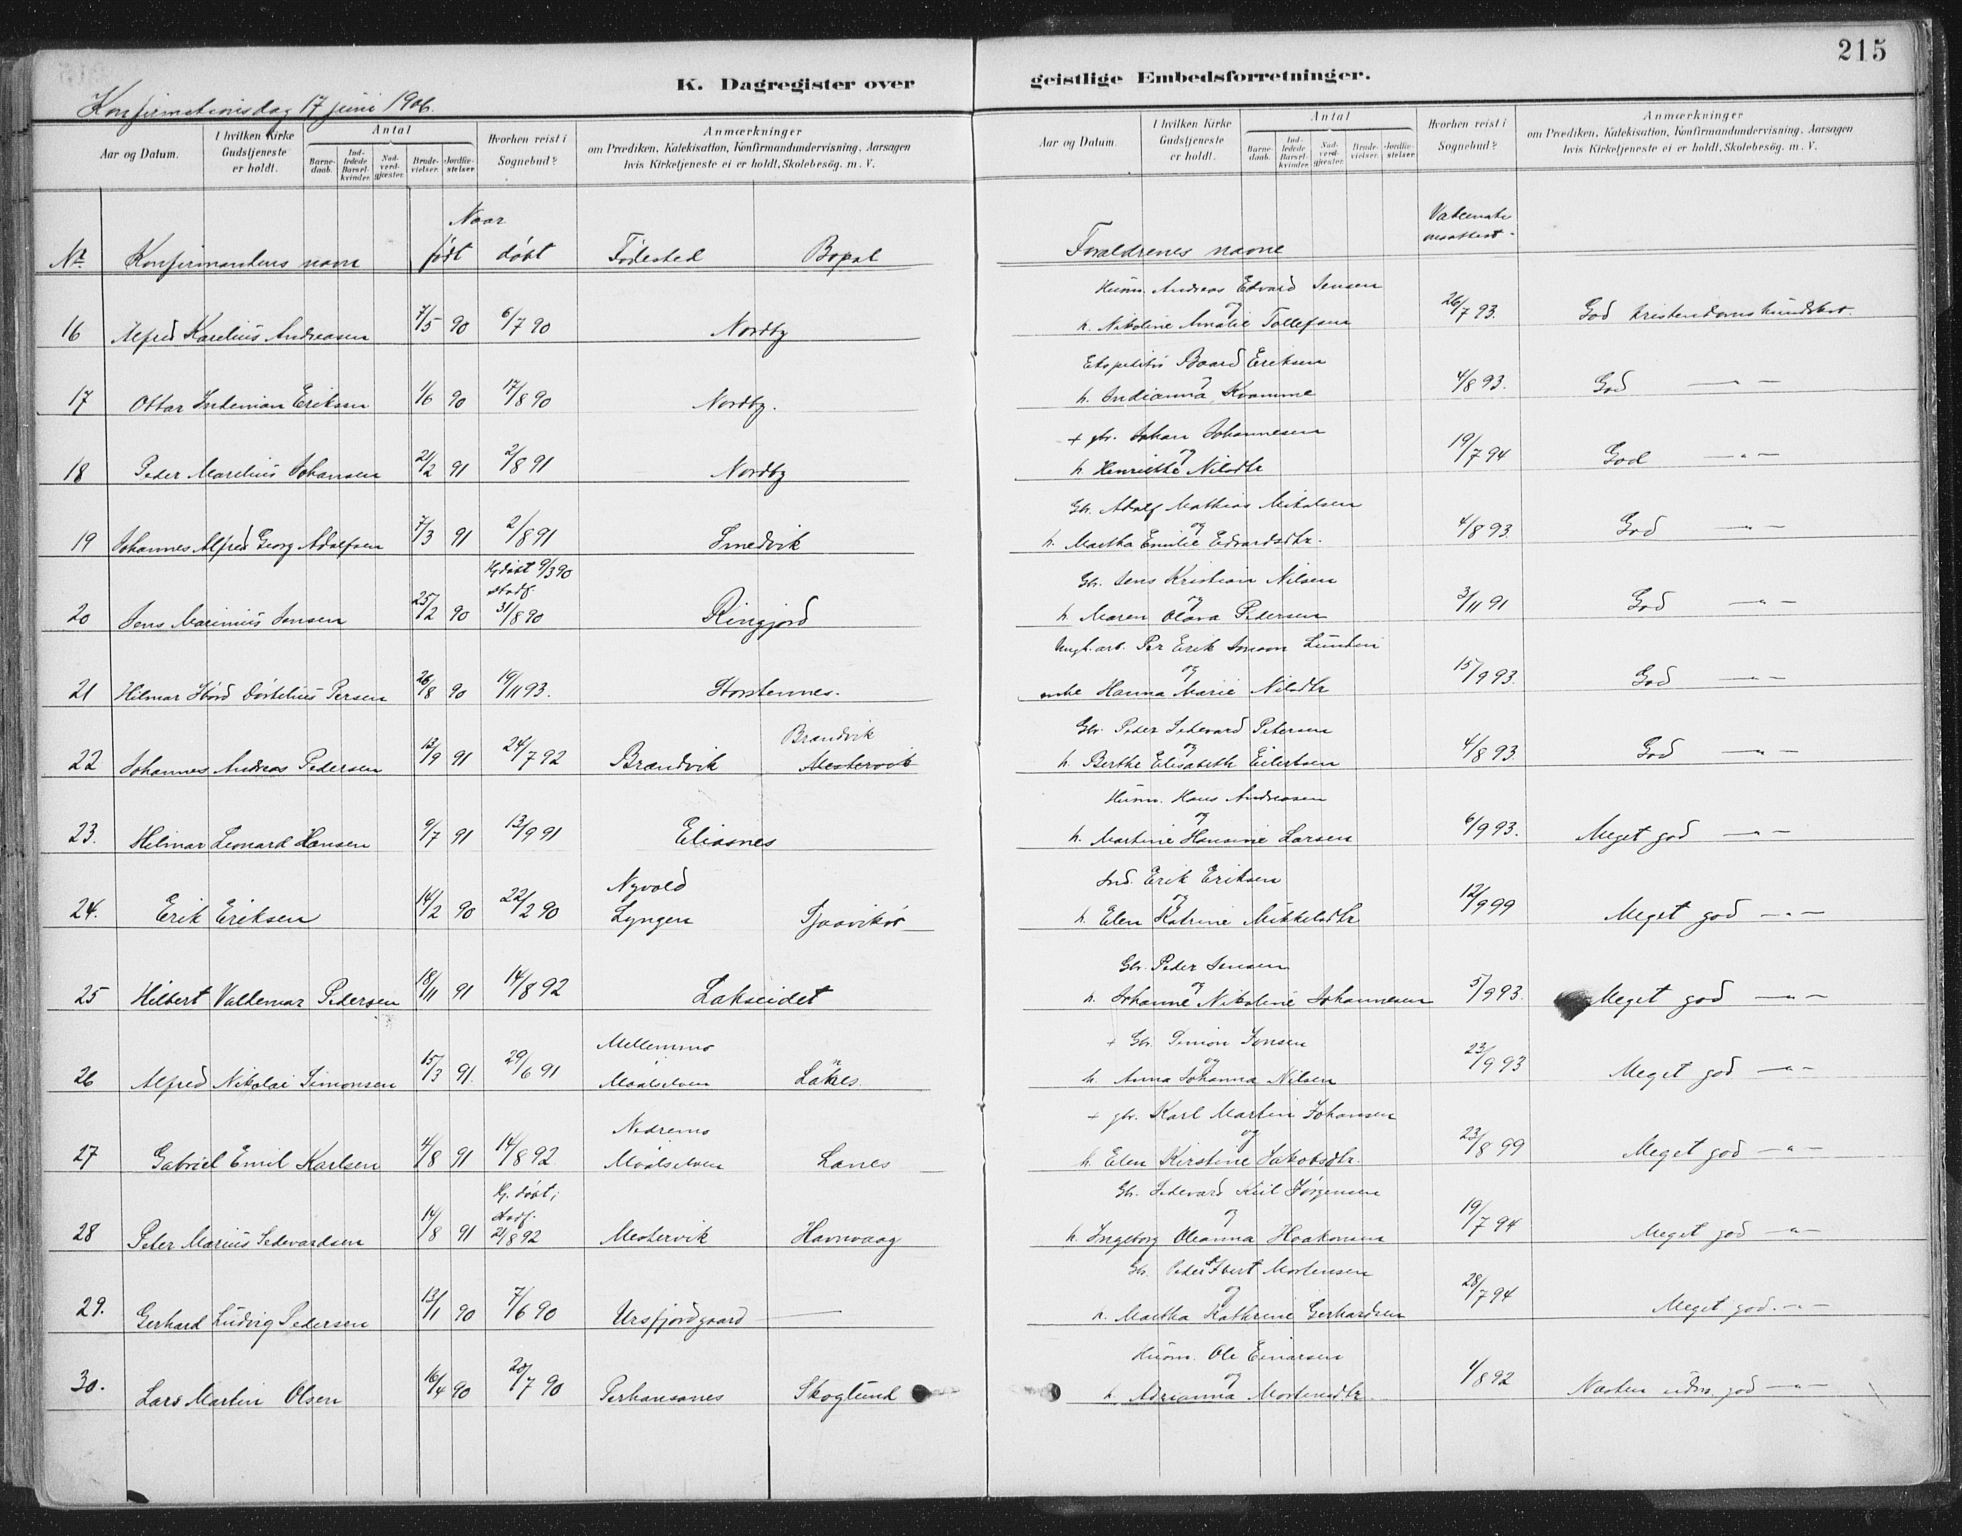 215
K. Dagregister over geistlige Embedsforretninger.
Konfirmationsdag 17 juni 1906.
Aar og Datum. I hvilken Kirke Gudstjeneste er holdt. Antal Barnedaab. Indledede Barselkvinder. Nadverdgjæster. Brudevielser. Jordfæstelser. Hvorhen reist i Sognebud? Anmærkninger om Prædiken, Katekisation, Konfirmandundervisning, Aarsagen hvis Kirketjeneste ei er holdt, Skolebesøg. m. V.
Aar og Datum. I hvilken Kirke Gudstjeneste er holdt. Antal Barnedaab. Indledede Barselkvinder. Nadverdgjæster. Brudevielser. Jordfæstelser. Hvorhen reist i Sognebud? Anmærkninger om Prædiken, Katekisation, Konfirmandundervisning, Aarsagen hvis Kirketjeneste ei er holdt, Skolebesøg. m. V.
Naar
Nr. Konfirmantens navn født døbt Fødested Bopæl Forældrenes navne
Husm. Andreas Edvard Jensen
og
16 Alfred Karelius Andreasen 7/5 90 6/7 90 Nordby h. Nikoline Amalie Tollefsen 26/7 93. God kristendomskundskab.
Ekspeditør Baard Eriksen
17 Ottar Indeman Eriksen 1/6 90 17/8 90 Nordby. h. Indianna Kvamme 4/8 93. God —〃—
+ gbr. Johan Johannesen
og
18 Peder Marelius Johansen 21/2 91 2/8 91 Nordby h. Henriette Nilsdtr 19/7 94 God —〃—
Gbr. Adolf Mathias Mikalsen
og
19 Johannes Alfred Georg Adolfsen 7/3 91 2/8 91 Smedvik h. Martha Emilie Edvardsdtr. 4/8 93. God —〃—
Hj. døbt 9/3 90
stadf.
Gbr. Jens Kristian Nilsen
og
20 Jens Marinius Jensen 25/2 90 31/8 90 Ringjord h. Maren Olava Pedersen 3/11 91 God —〃—
Ungk. arb. Per Erik Lunden
og
21 Hilmar Dørtelius Persen 26/8 90 19/11 93. Storstennes. enke Hanna Marie Nilsdtr 15/9 93. God —〃—
Brandvik
Gbr. Peder Sedevard Petersen
og
22 Johannes Andreas Pedersen 12/9 91 24/7 92 Brandvik Mestervik h. Berthe Elisabeth Eilertsen 4/8 93. God —〃—
Husm. Hans Andreasen
og
23. Hilmar Leonard Hansen 9/7 91 13/9 91 Eliasnes h. Martine Hansine Larsen 6/9 93. Meget god —〃—
Nyvold
Ind. Erik Eriksen
og
24. Erik Eriksen 14/2 90 22/2 90 Lyngen h. Elen Katrine Mikkelsdtr 12/9 99 Meget god —〃—
Gbr. Peder Jensen
og
25 Hilbert Valdemar Pedersen 18/11 91 14/8 92 Lakseidet h. Johanne Nikoline Johannesen 5/9 93. Meget god —〃—
Mellemmo
+ Gbr. Simon Jensen
og
26 Alfred Nikolai Simonsen 15/3 91. 29/6 91 Maalselven h. Anna Johanna Nilsen 23/9 93 Meget god —〃—
Nedremo
+ gbr. Karl Martin Johansen
og
27 Gabriel Emil Karlsen 4/8 91 14/8 92. Maalselven Lanes h. Elen Kirstine Jakobsdtr. 23/8 99 Meget god —〃—
Hj. døbt;
stadf.
Gbr. Sedevard Kiil Jørgensen
og
28 Peter Marius Sedevardsen 14/8 91 21/8 92 Mestervik Havnvaag h. Ingeborg Oleanna Haakonsen 19/7 94 Meget god —〃—
Gbr. Peder Ibert Mortensen
og
29. Gerhard Ludvig Pedersen 13/1 90 7/6 90 Ursfjordgaard — h. Martha Kathrine Gerhardsen 28/7 94 Meget god. —〃—
Husm. Ole Einarsen
og
30. Lars Martin Olsen 16/4 90 20/7 90 Perhansanes Skoglund h. Adrianna Mortensdtr. 1/8 92 Næsten udm. god —〃—